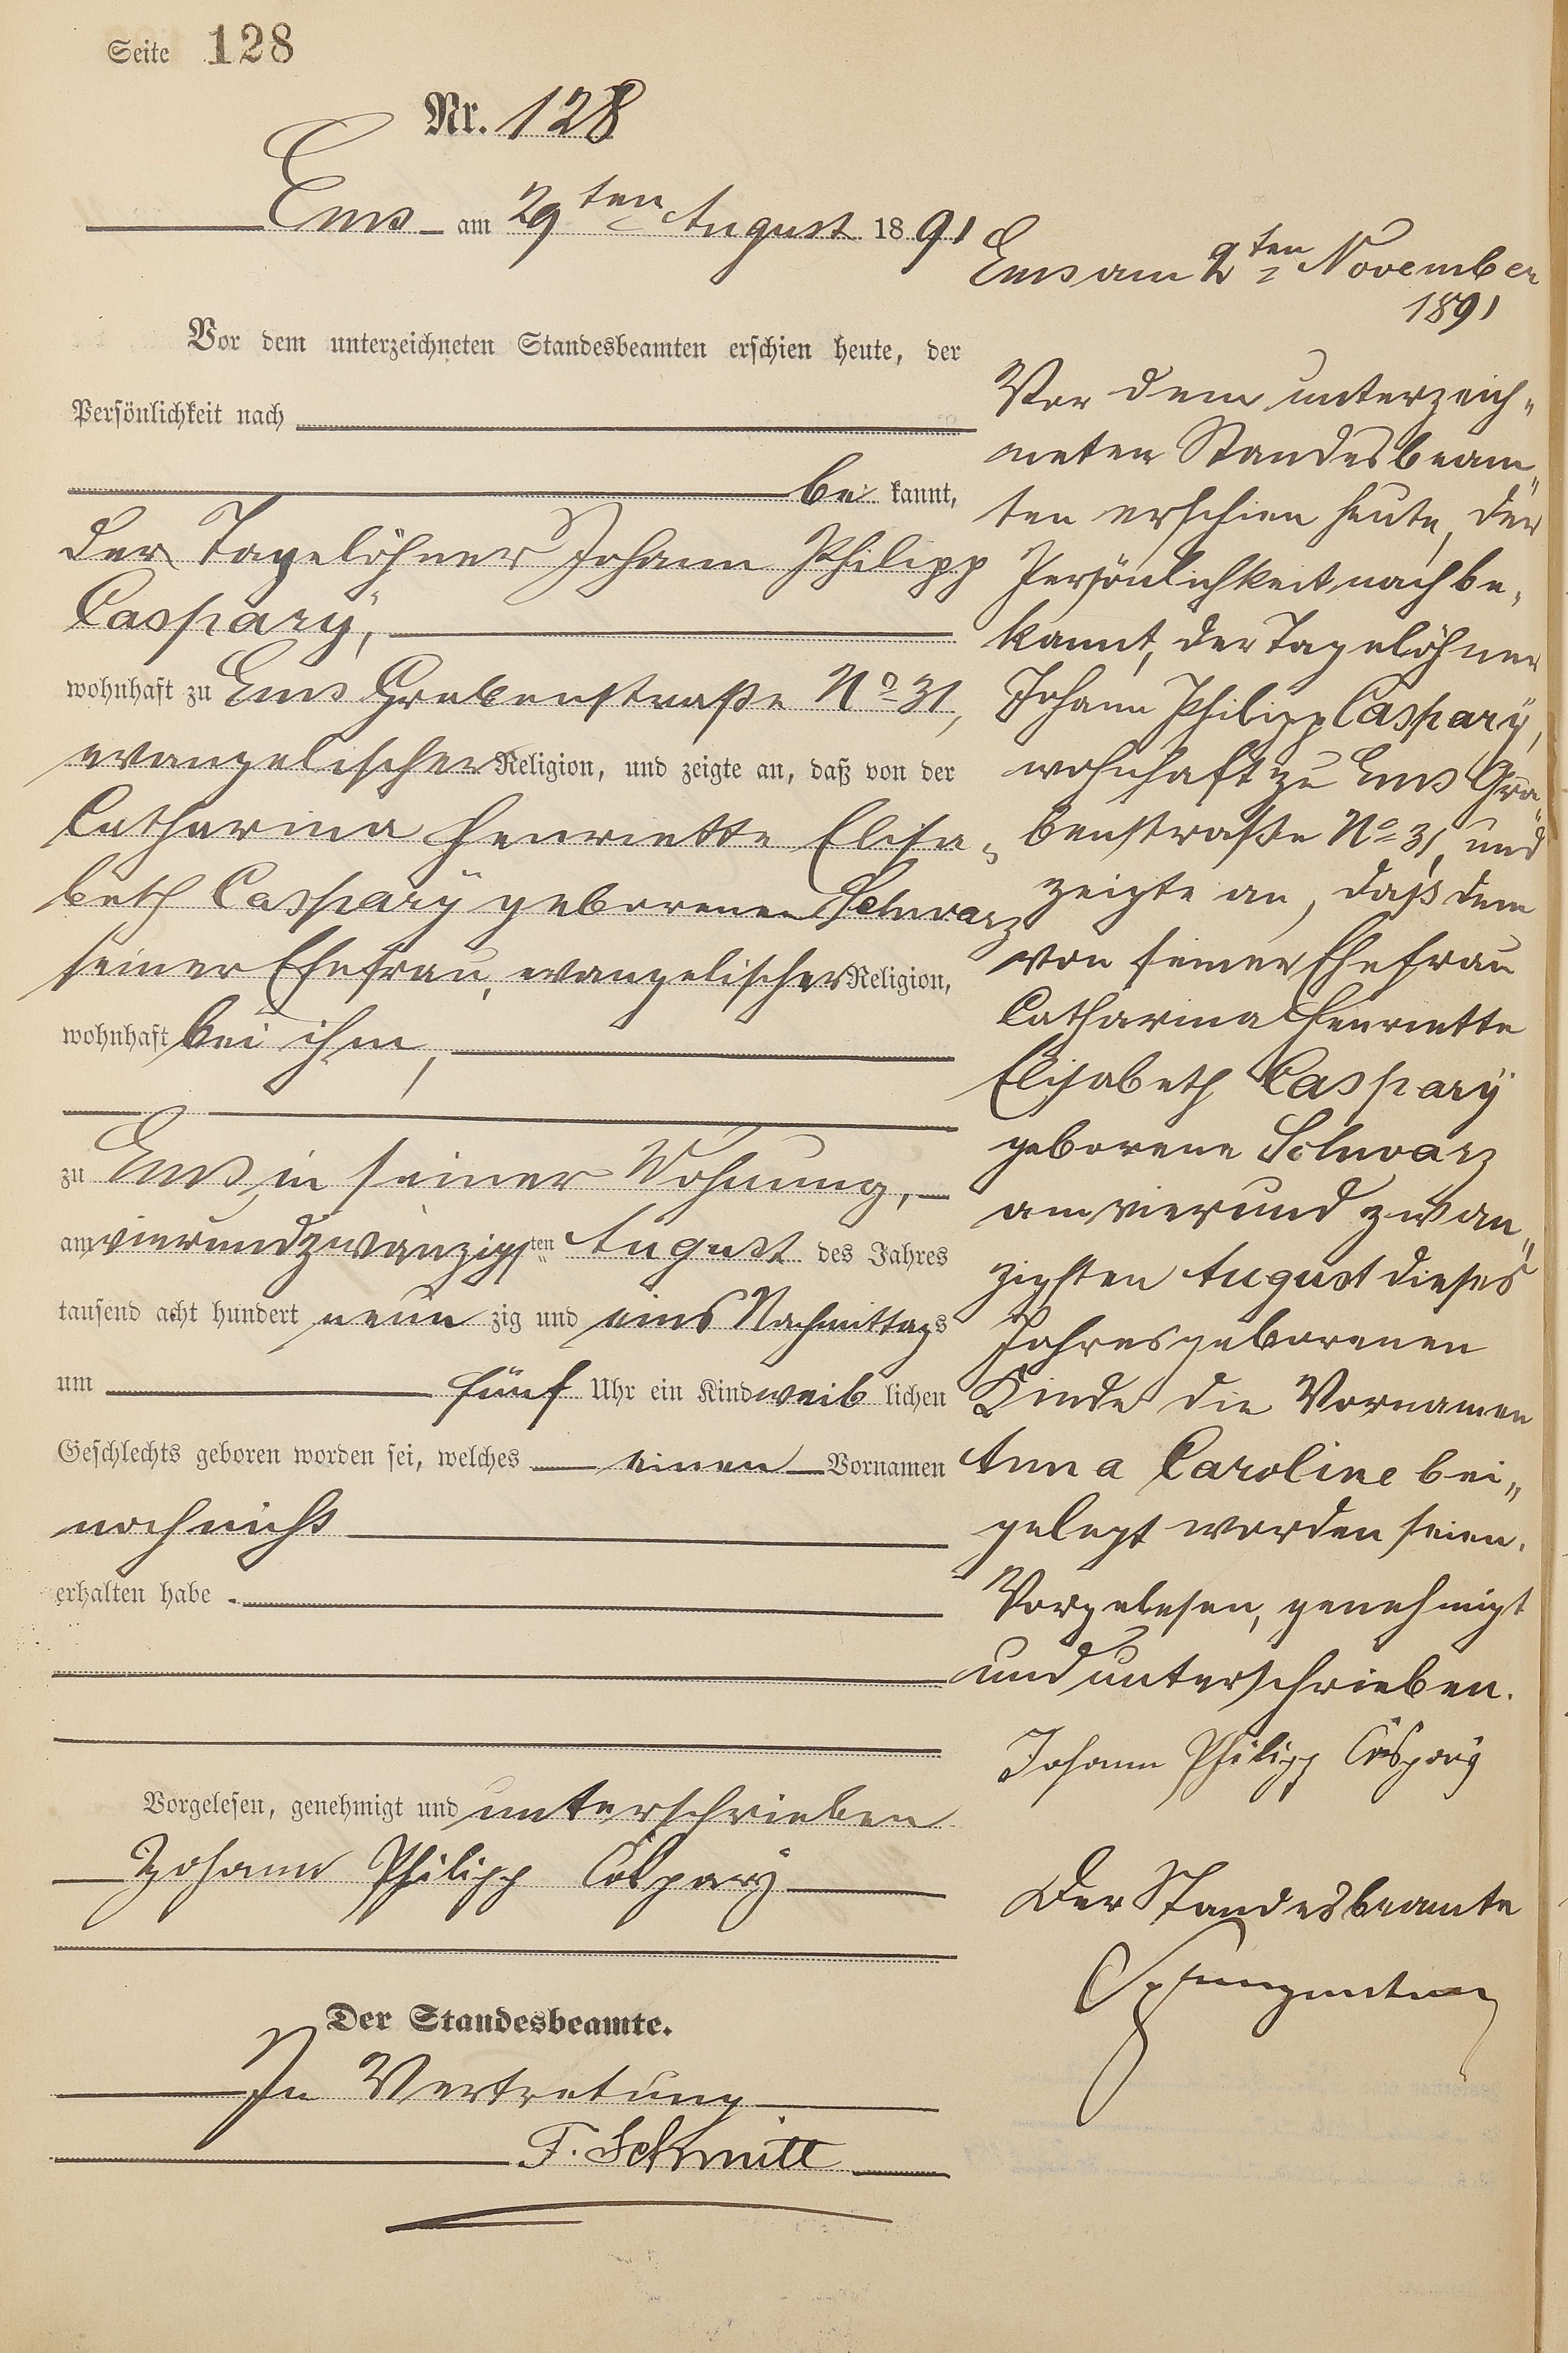 Seite 128
Nr. 128
Ems am 29ten August 1891
Vor dem unterzeichneten Standesbeamten erschien heute, der
Persönlichkeit nach
be kannt,
der Tagelöhner Johann Philipp
Caspary,
wohnhaft zu Ems Grabenstraße No 31,
evangelischer Religion, und zeigte an, daß von der
Catharina Henriette Elisa-
beth Caspary geborenen Schwarz
seiner Ehefrau, evangelischer Religion,
wohnhaft bei ihm,
zu Ems, in seiner Wohnung,
am vierundzwanzigsten August des Jahres
tausend acht hundert neun zig und eins Nachmittags
um fünf Uhr ein Kind weib lichen
Geschlechts geboren worden sei, welches einen Vornamen
noch nicht
erhalten habe.
Vorgelesen, genehmigt und unterschrieben
Johann Philipp Caspary
Der Standesbeamte.
In Vertretung
F. Schmitt
Ems am 2ten November
1891
Vor dem unterzeich-
neten Standesbeam-
ten erschien heute, der
Persönlichkeit nach be-
kannt, der Tagelöhner
Johann Philipp Caspary,
wohnhaft zu Ems Gra-
benstraße No 31, und
zeigte an, daß dem
von seiner Ehefrau
Catharina Henriette
Elisabeth Caspary
geborene Schwarz
am vierund zwan-
zigsten August dieses
Jahres geborenen
Kinde die Vornamen
Anna Caroline bei-
gelegt worden seien.
Vorgelesen, genehmigt
und unterschrieben.
Johann Philipp Caspary
Der Standesbeamte